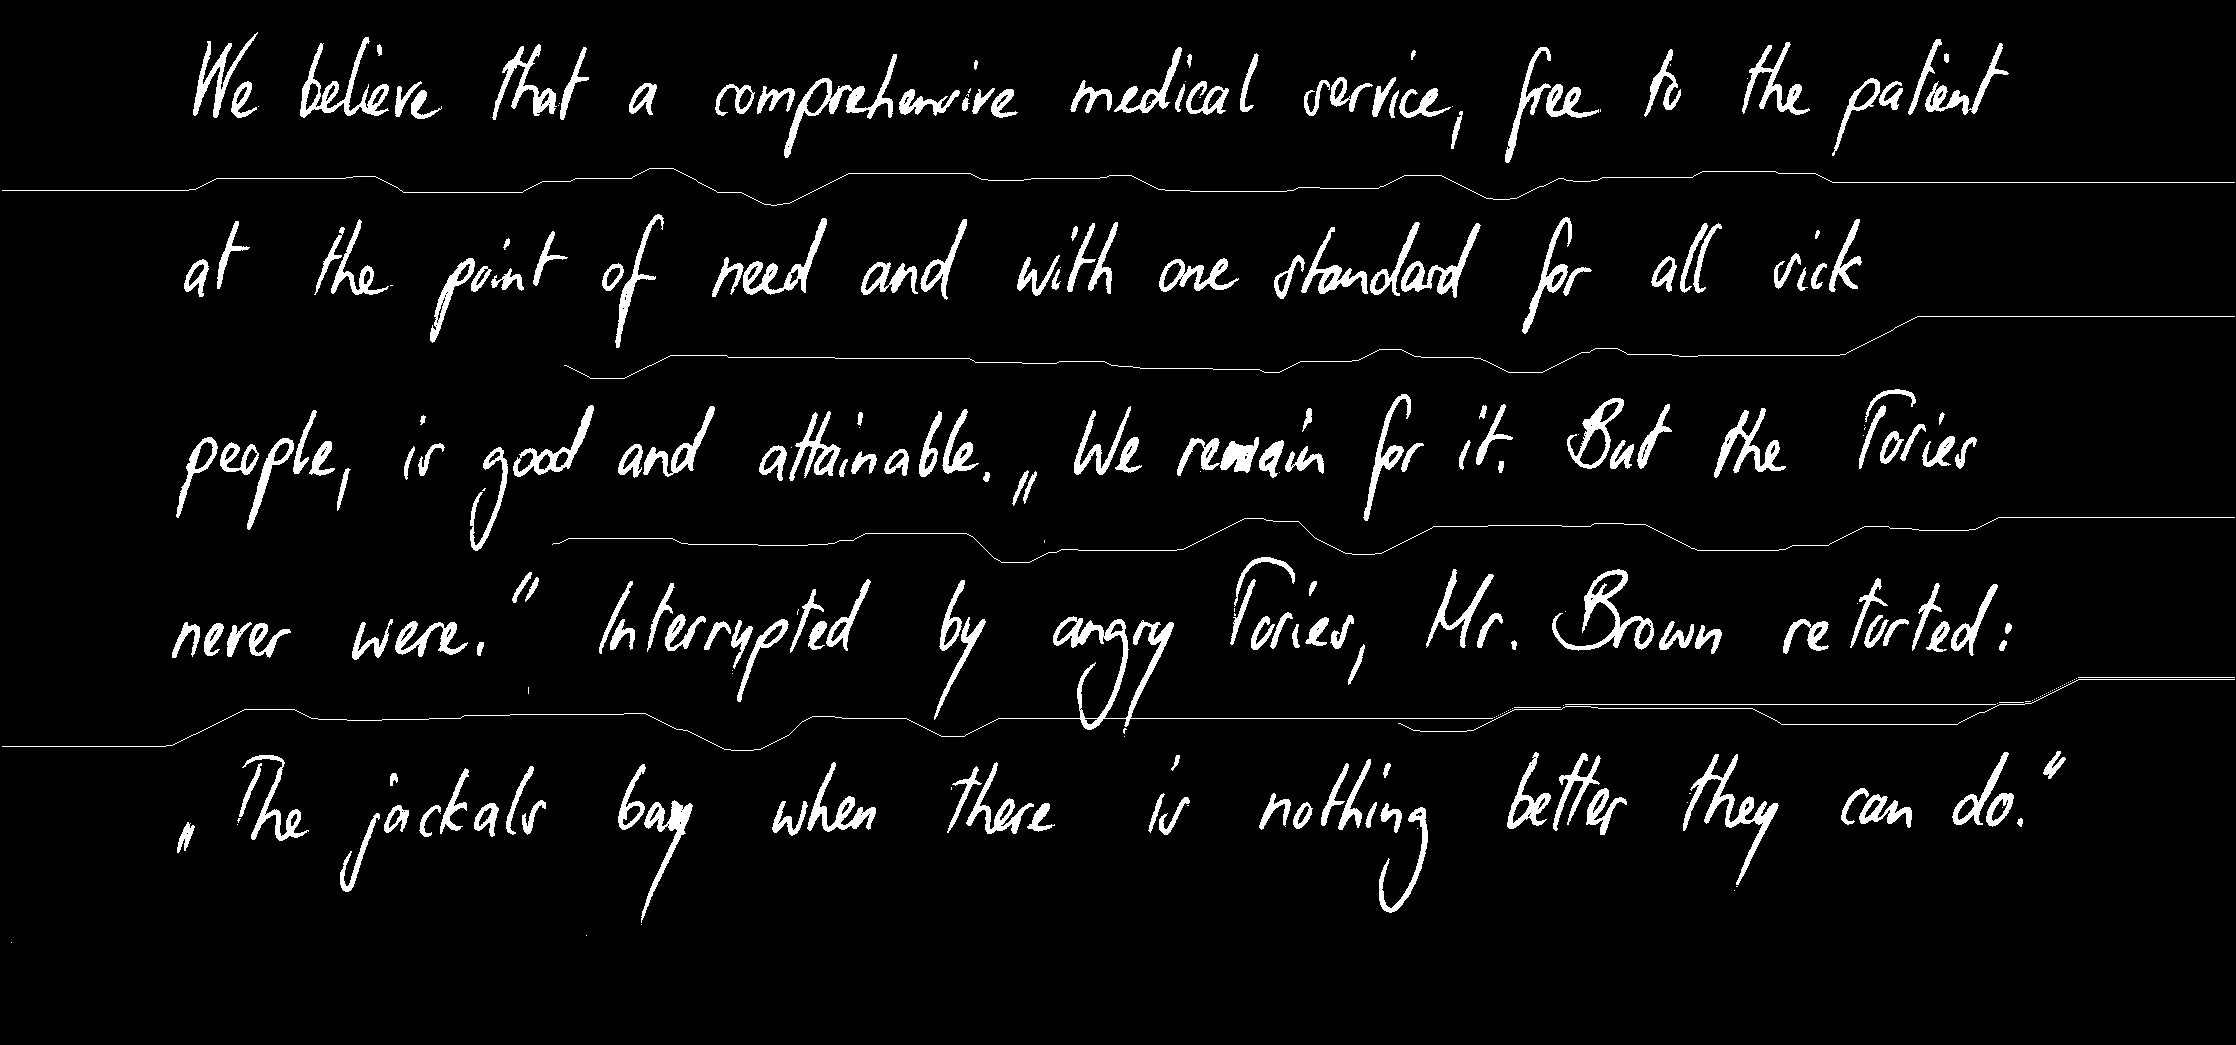 We believe that a comprehensive medical service, free to the patient
at the point of need and with one standard for all sick
people, is good and attainable. „ We remain for it. But the Tories
never were.“ Interrupted by angry Tories, Mr. Brown retorted:
„The jackals bay when there is nothing better they can do.“